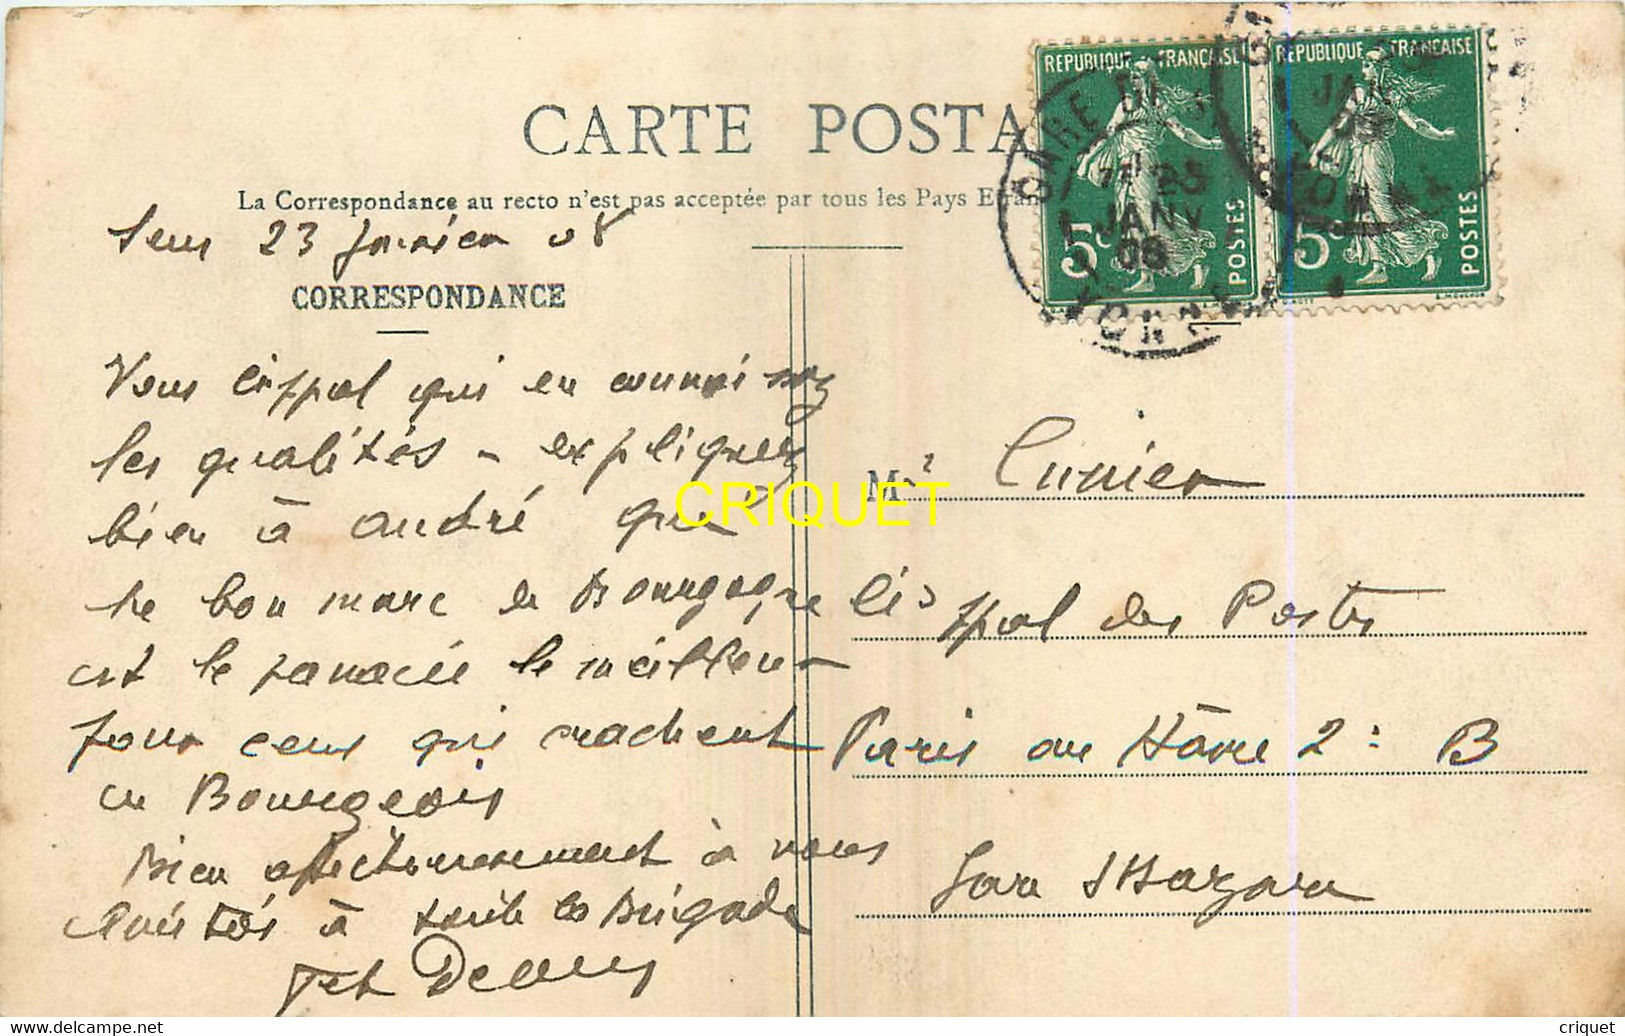 CARTE POSTA
La Correspondance au recto n'est pas acceptée par tous les Pays Etran
Sens 23 Janvier 08
CORRESPONDANCE
REPUBLIQUE FRANÇAISE
5c POSTES
REPUBLIQUE FRANÇAISE
5c POSTES
GARE DE
23
JANV
08
YONNE
Vous qui en connaissez
les qualités - expliquez
bien à andré que
le bon marc de Bourgogne
est le panacée le meilleur
pour ceux qui crachent
en Bourgeois
Bien affectionnement à vous
à toute la Brigade
CRIQUET
Mr Cunier
des Postes
Paris au Hâvre 2: B
Gare St Lazare
www.delcampe.net
criquet